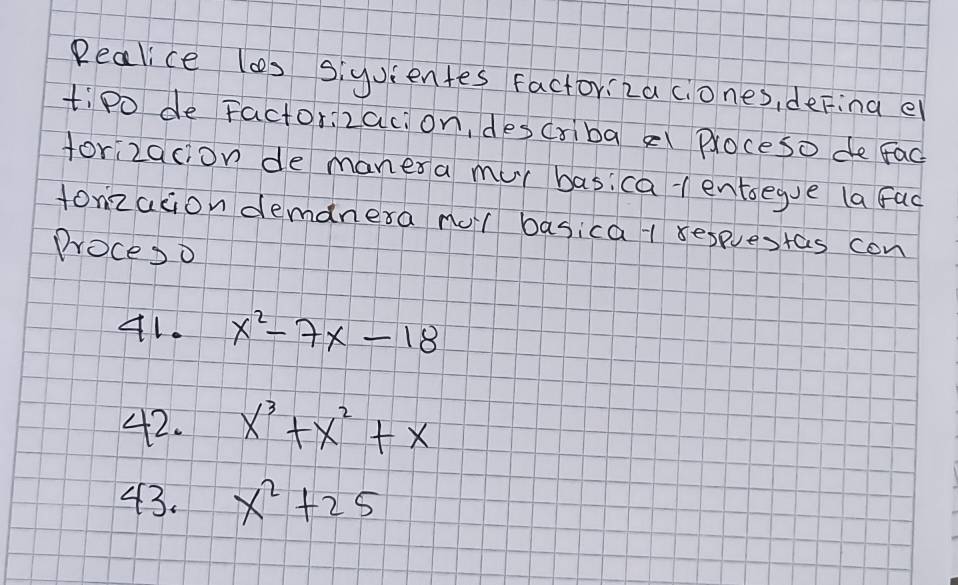 Realice las siguientes factorizaciones, defina el
tipo de Factorización, describa el proceso de fac
torización de manera muy basica y entregue la fac
torización demanera muy basica y respuestas con
Proceso
41. x² - 7x - 18
42. x³ + x² + x
43. x² + 25